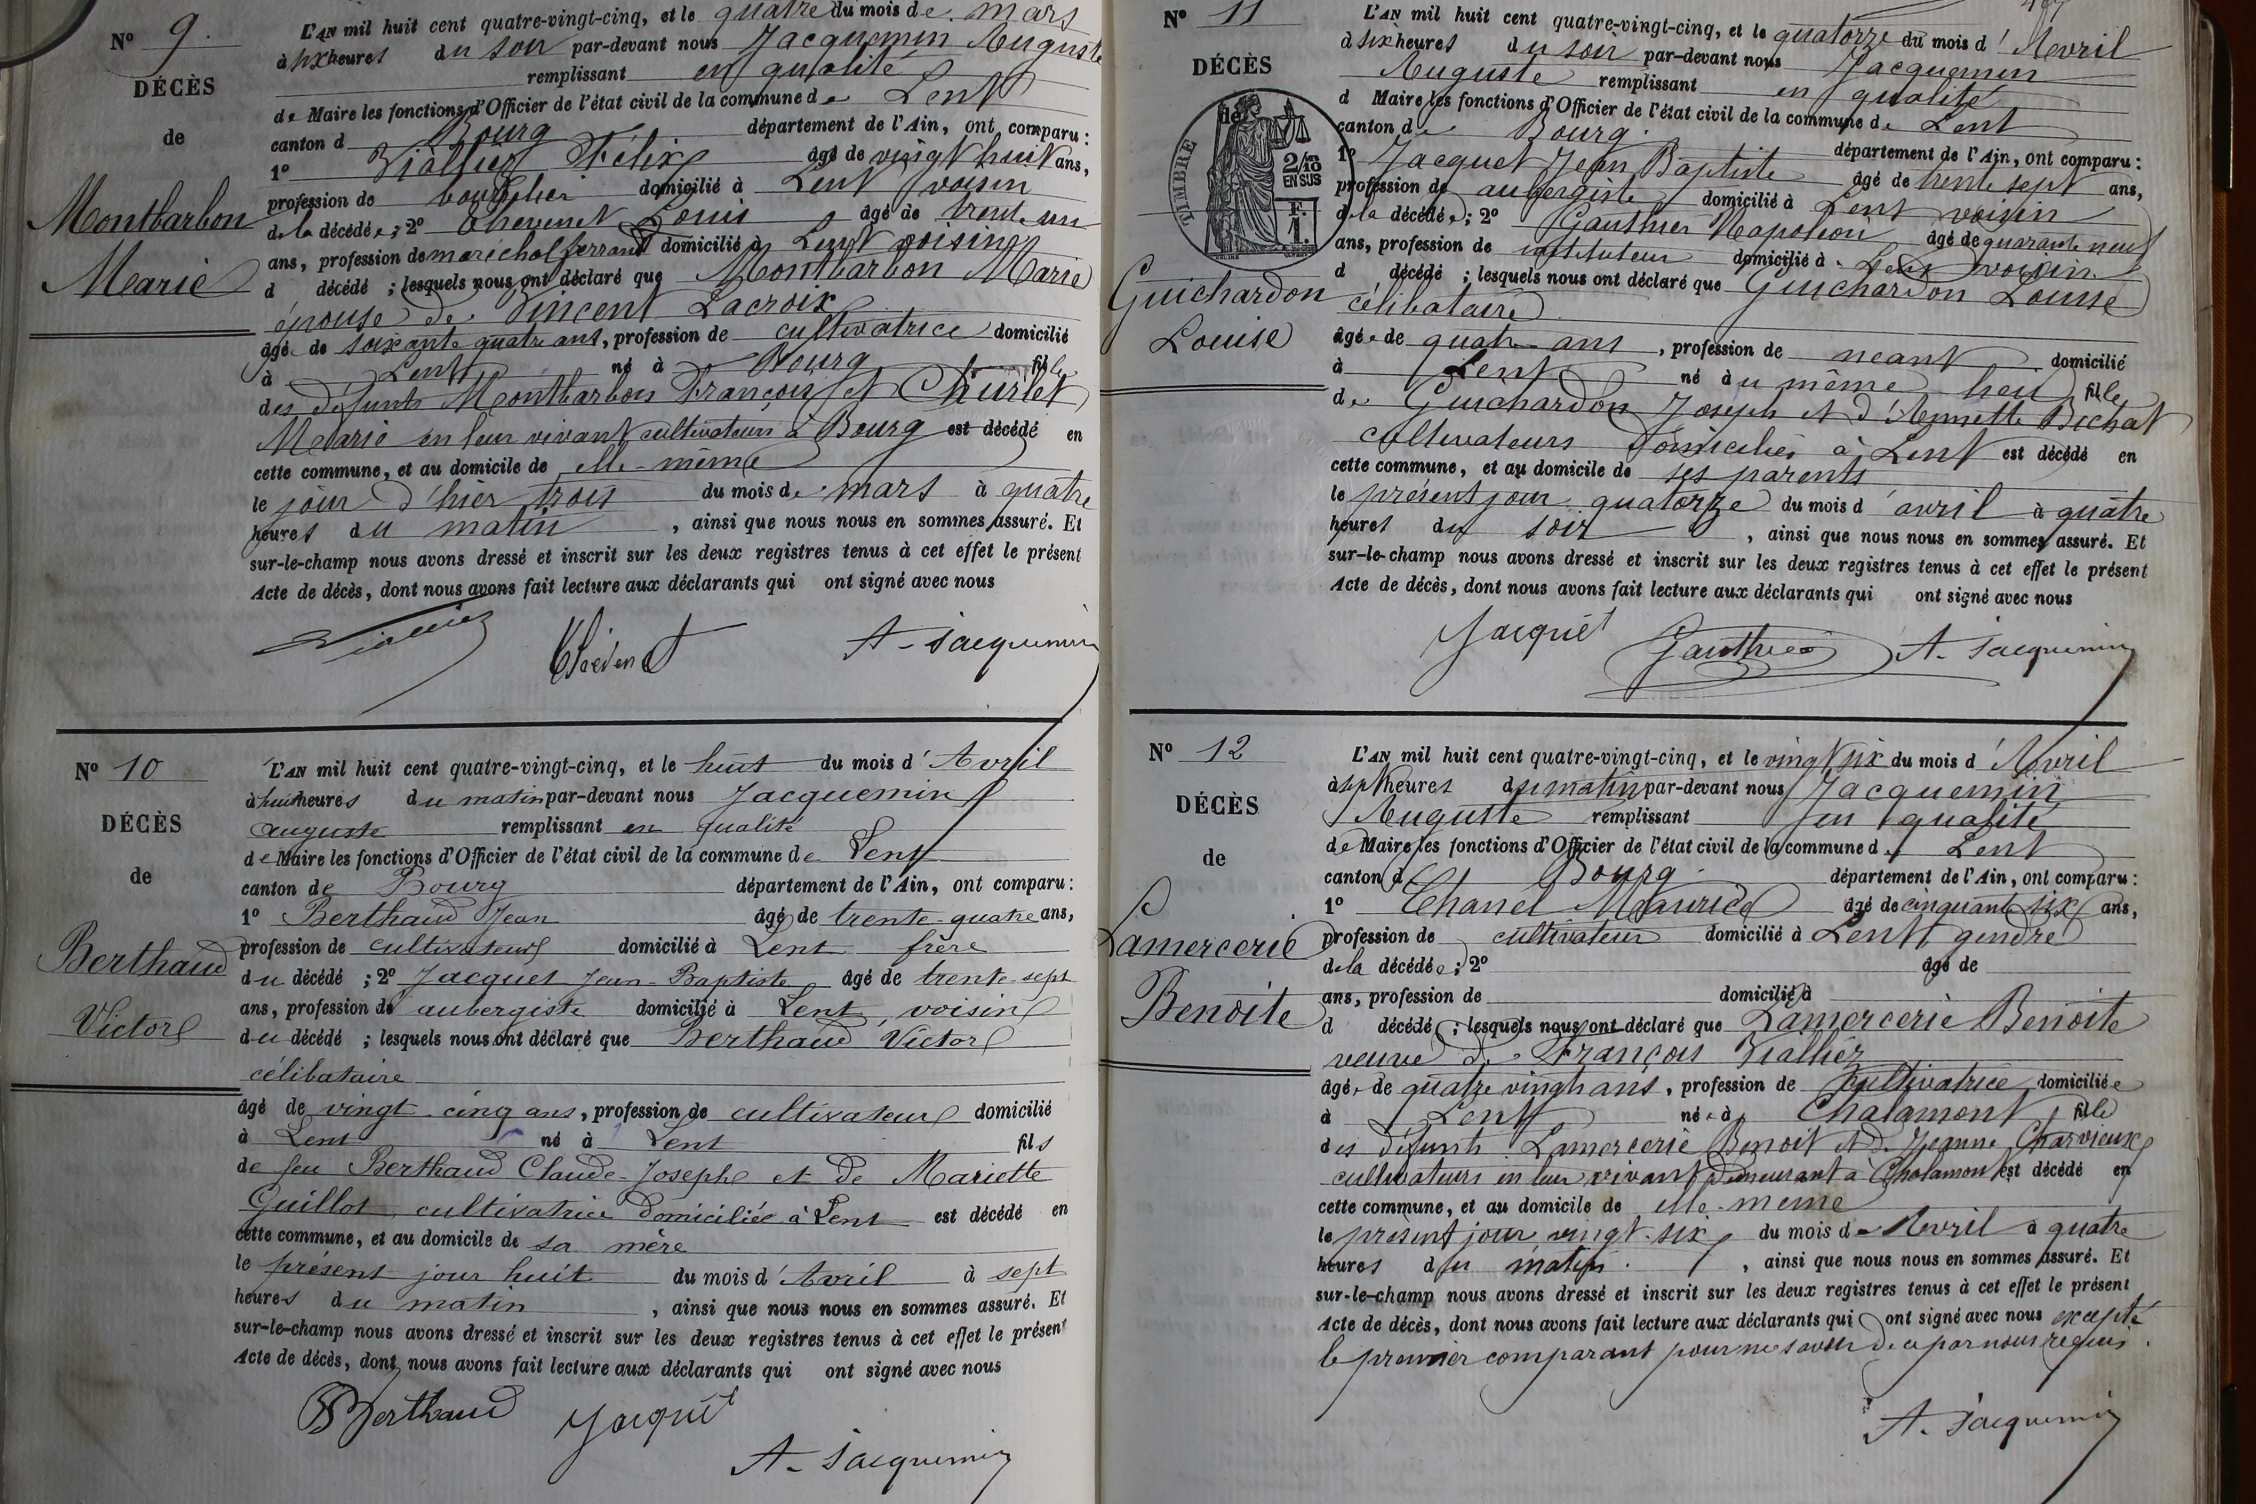 N° 9.
DÉCÈS
de
Montbarbon
Marie
L'AN mil huit cent quatre-vingt-cinq, et le quatre du mois de mars
à six heures du soir par-devant nous Jacquemin Auguste
remplissant en qualité
de Maire les fonctions d'Officier de l'état civil de la commune de Lent
canton d Bourg département de l'Ain, ont comparu :
1° Viallier Félix âgé de vingt huit ans,
profession de domicilié à Lent voisin
de la décédée ; 2° Chevenet Louis âgé de trente un
ans, profession de maréchal ferrand domicilié à Lent voisin
d décédé ; lesquels nous ont déclaré que Montbarbon Marie
épouse de Vincent Lacroix
âgé de soixante quatre ans, profession de cultivatrice domicilié
à Lent né à Bourg fille
des défunts Montbarbon François et Churlet
Marie en leur vivant cultivateurs à Bourg est décédé en
cette commune, et au domicile de elle-même
le jour d'hier trois du mois de mars à quatre
heures du matin , ainsi que nous nous en sommes assuré. Et
sur-le-champ nous avons dressé et inscrit sur les deux registres tenus à cet effet le présent
Acte de décès, dont nous avons fait lecture aux déclarants qui ont signé avec nous
A. Jacquemin
N° 10
DÉCÈS
de
Berthaud
Victor
L'AN mil huit cent quatre-vingt-cinq, et le huit du mois d'Avril
à huit heures du matin par-devant nous Jacquemin
auguste remplissant en qualité
de Maire les fonctions d'Officier de l'état civil de la commune de Lent
canton de Bourg département de l'Ain, ont comparu :
1° Berthaud Jean âgé de trente-quatre ans,
profession de cultivateur domicilié à Lent frère
du décédé ; 2° Jacquet Jean-Baptiste âgé de trente-sept
ans, profession de aubergiste domicilié à Lent, voisin
du décédé ; lesquels nous ont déclaré que Berthaud Victor
célibataire
âgé de vingt-cinq ans, profession de cultivateur domicilié
à Lent né à Lent fils
de feu Berthaud Claude-Joseph et de Mariette
Guillot, cultivatrice domiciliée à Lent est décédé en
cette commune, et au domicile de sa mère
le présent jour huit du mois d'Avril à sept
heures du matin , ainsi que nous nous en sommes assuré. Et
sur-le-champ nous avons dressé et inscrit sur les deux registres tenus à cet effet le présent
Acte de décès, dont nous avons fait lecture aux déclarants qui ont signé avec nous
Berthaud Jacquet
A. Jacquemin
N° 11
DÉCÈS
de
TIMBRE
2/10
EN SUS
F.
1.
Guichardon
Louise
L'AN mil huit cent quatre-vingt-cinq, et le quatorze du mois d'Avril
à six heures du soir par-devant nous Jacquemin
Auguste remplissant en qualité
d Maire les fonctions d'Officier de l'état civil de la commune de Lent
canton de Bourg. département de l'Ain, ont comparu :
1° Jacquet Jean Baptiste âgé de trente sept ans,
profession de aubergiste domicilié à Lent voisin
de la décédée ; 2° Gauthier Napoléon âgé de quarante neuf
ans, profession de instituteur domicilié à Lent voisin
d décédé ; lesquels nous ont déclaré que Guichardon Louise
célibataire
âgée de quatre ans, profession de neant domicilié
à Lent né au même lieu fille
de Guichardon Joseph et d'Annette Bichat
cultivateurs domiciliés à Lent est décédé en
cette commune, et au domicile de ses parents
le présent jour quatorze du mois d'avril à quatre
heures du soir , ainsi que nous nous en sommes assuré. Et
sur-le-champ nous avons dressé et inscrit sur les deux registres tenus à cet effet le présent
Acte de décès, dont nous avons fait lecture aux déclarants qui ont signé avec nous
Jacquet Gauthier A. Jacquemin
N° 12
DÉCÈS
de
Lamercerie
Benoite
L'AN mil huit cent quatre-vingt-cinq, et le vingt six du mois d'Avril
à sept heures du matin par-devant nous Jacquemin
Auguste remplissant en qualité
de Maire les fonctions d'Officier de l'état civil de la commune de Lent
canton de Bourg. département de l'Ain, ont comparu :
1° Chanel Maurice âgé de cinquante six ans,
profession de cultivateur domicilié à Lent gendre
de la décédée ; 2° âgé de
ans, profession de domicilié à
d décédé ; lesquels nous ont déclaré que Lamercerie Benoite
veuve de François Viallier
âgée de quatre vingt ans, profession de cultivatrice domiciliée
à Lent née à Chalamont fille
des défunts Lamercerie Benoit et de Jeanne Charvieux
cultivateurs en leur vivant demeurant à Chalamont est décédé en
cette commune, et au domicile de elle-meme
le présent jour vingt-six du mois d'Avril à quatre
heures du matin. , ainsi que nous nous en sommes assuré. Et
sur-le-champ nous avons dressé et inscrit sur les deux registres tenus à cet effet le présent
Acte de décès, dont nous avons fait lecture aux déclarants qui ont signé avec nous excepté
le premier comparant pour ne savoir de ce par nous requis.
A. Jacquemin